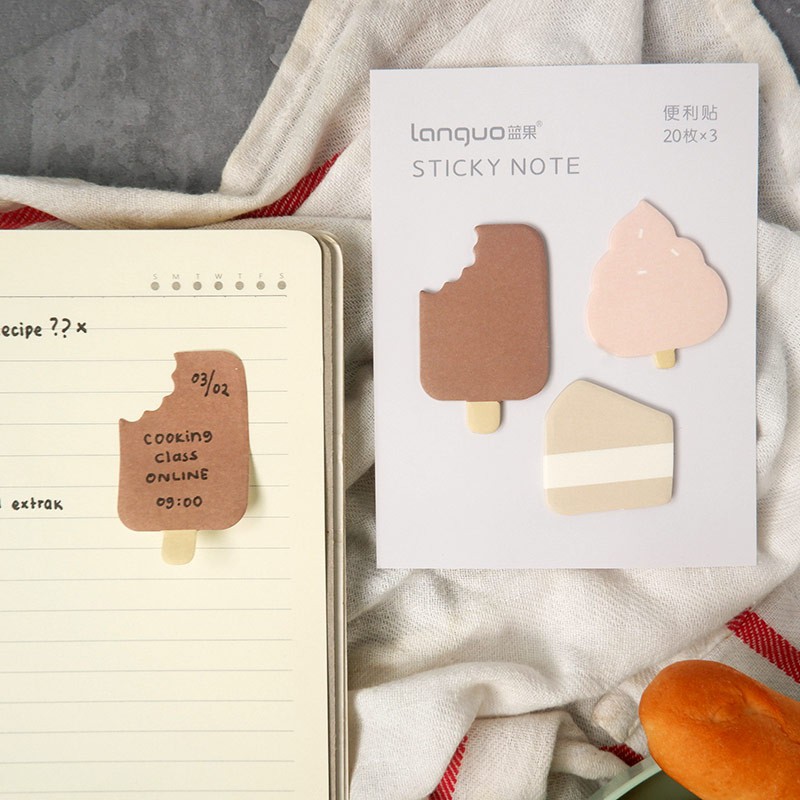 languo蓝果®
STICKY NOTE
便利贴
20枚×3
S M T W T F S
ecipe ?? x
03/02
COOKING
Class
ONLINE
09:00
extrak